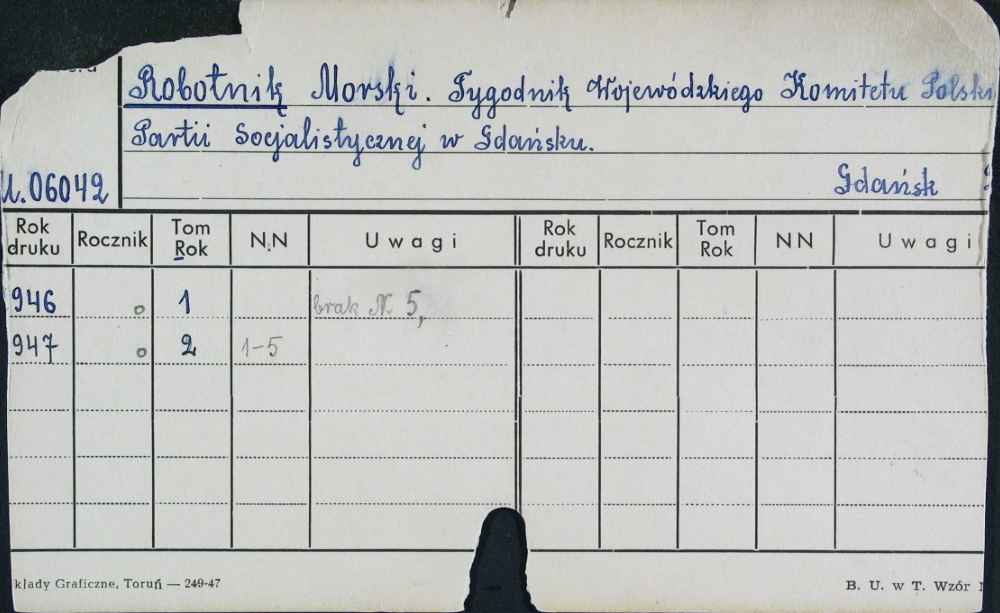 Robotnik Morski. Tygodnik Wojewódzkiego Komitetu Polski
Partii Socjalistycznej w Gdańsku.
U.06042
Gdańsk
Rok druku Rocznik Tom Rok N.N Uwagi Rok druku Rocznik Tom Rok NN Uwagi
946 o 1 brak N. 5,
947 o 2 1-5
kłady Graficzne, Toruń — 249-47
B. U. w T. Wzór